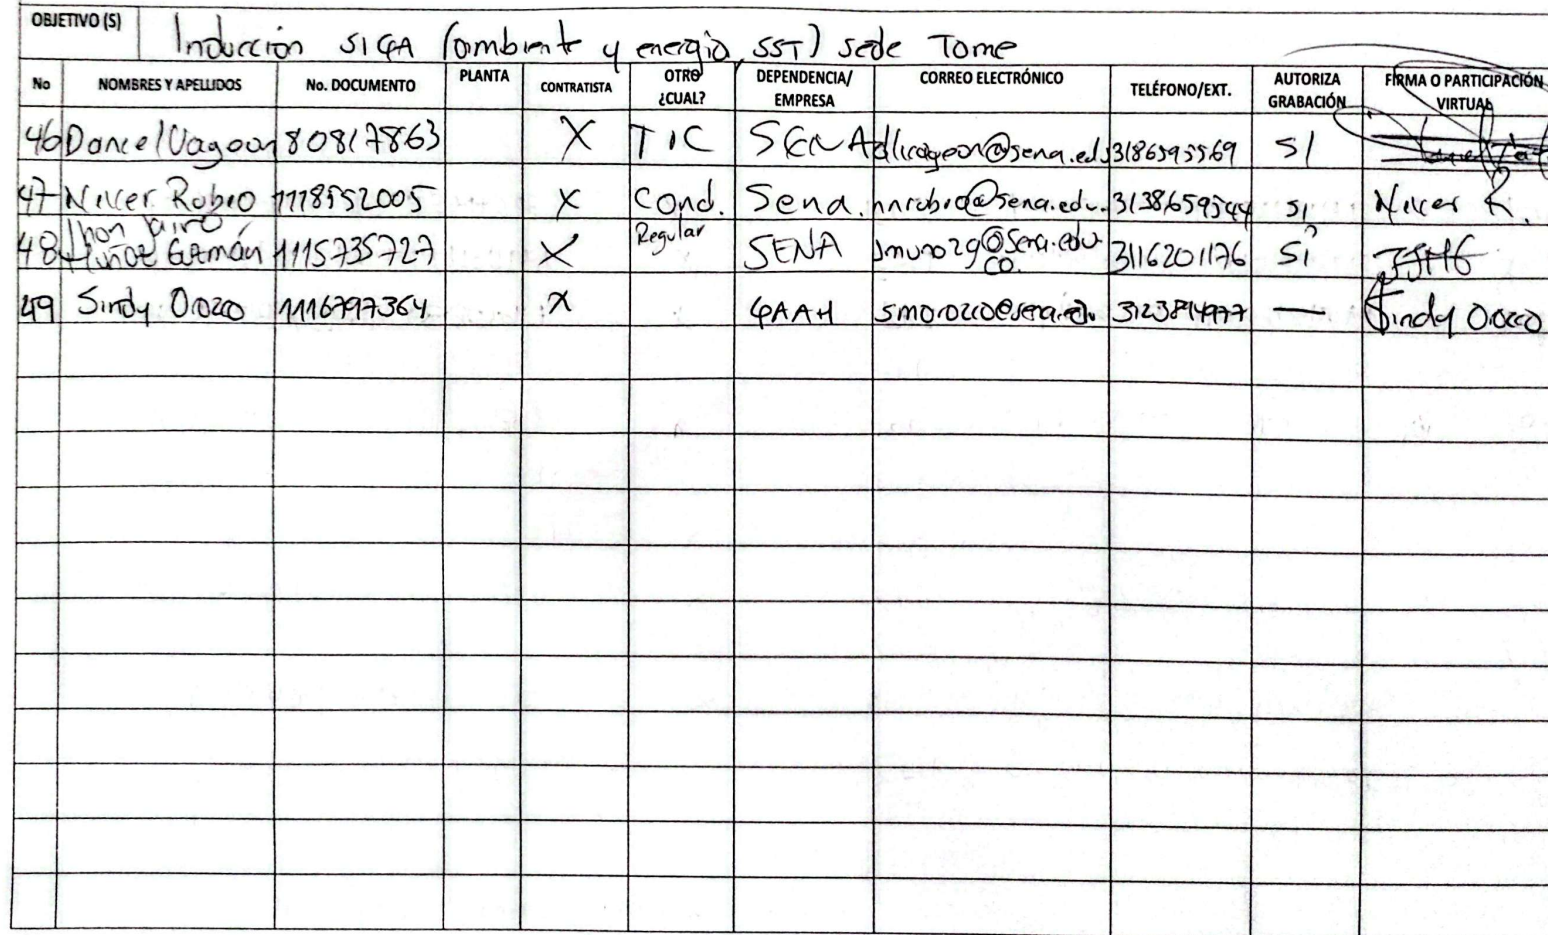 OBJETIVO (S) Inducción SIGA (ambiente y energía, SST) sede Tame
No NOMBRES Y APELLIDOS No. DOCUMENTO PLANTA CONTRATISTA OTRO ¿CUAL? DEPENDENCIA/ EMPRESA CORREO ELECTRÓNICO TELÉFONO/EXT. AUTORIZA GRABACIÓN FIRMA O PARTICIPACIÓN VIRTUAL
46 Daniel 80817863 X TIC SENA 3186595569 SI
47 Rubio 1118552005 X Cond. Sena. nnrubio@sena.edu. 3138659544 si
48 Jhon Jairo Muñoz Guzmán 1115735727 X Regular SENA jmunozg@sena.edu.co. 3116201176 Si JJMG
49 Sindy Orozco 1116797364 X GAAH smorozco@sena.edu. 3123894977 — Sindy Orozco